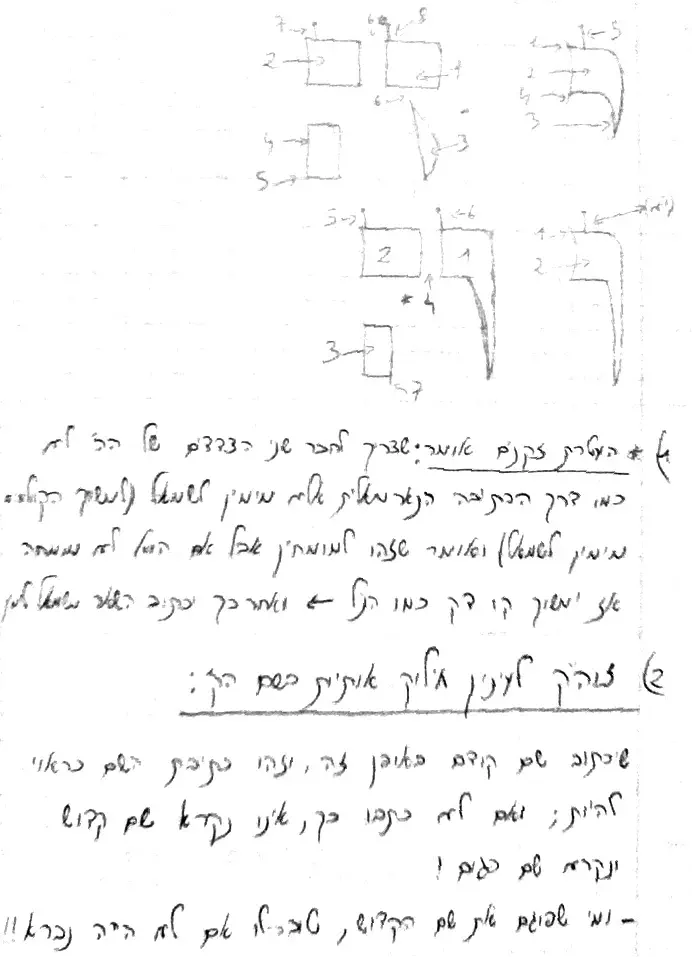 7 6 8
2 1
6
4 3
5
5
1
2
4
3
5 6
2 1
* 4
3
7
1
2
1) * העטרת זקנים אומר: שצריך לחבר שני הצדדים של הה' לא
כמו דרך הכתיבה הנארמאלית אלא מימין לשמאל (למשוך הקול
מימין לשמאל) ואומר שזהו למומחין אבל אם לא ממחה
אז ימשוך קו דק כמו הנ"ל ← ואחר כך יכתוב השאר משמאל
2) זוה"ק לענין חילוק אותיות בשם הק':
שיכתוב שם קודם באופן זה, וזהו כתיבת השם כראוי
להיות; ואם לא כתבו כך, אינו נקרא שם קדוש
ונקרא שם פגום!
- ומי שפוגם את שם הקדוש, טוב לו אם לא היה נברא!!